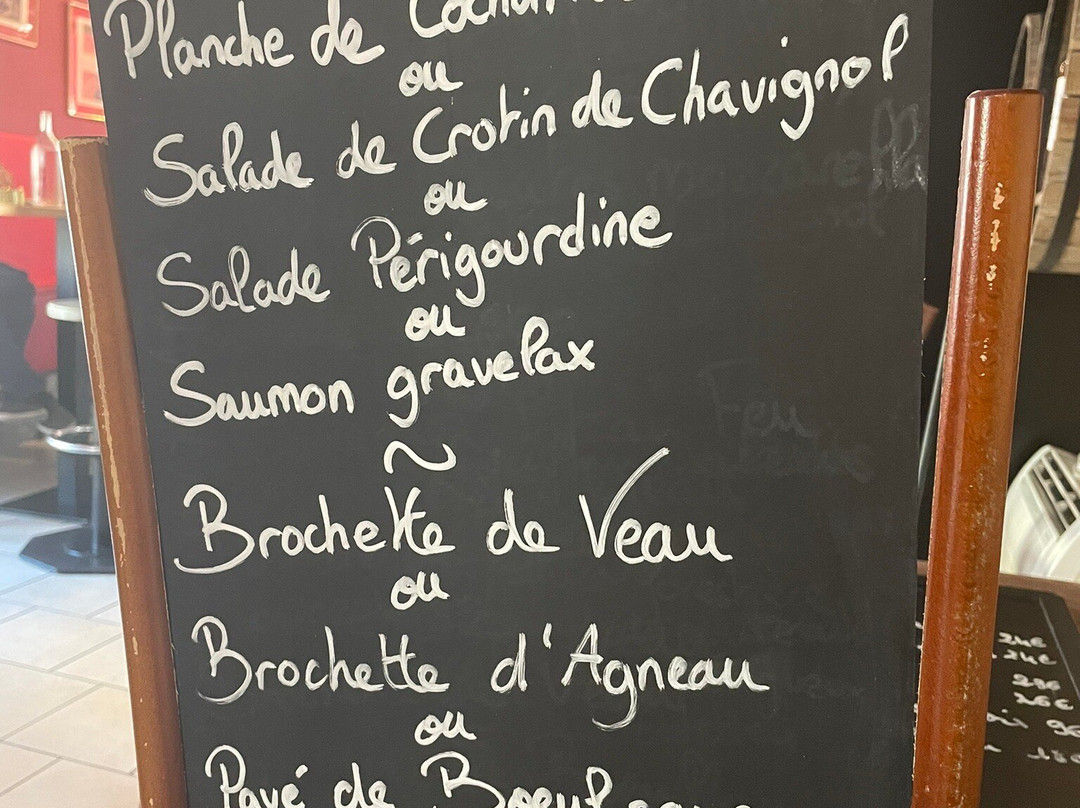 Planche de
ou
Salade de Crotin de Chavignol
ou
Salade Périgourdine
ou
Saumon gravelax
~
Brochette de Veau
ou
Brochette d'Agneau
ou
Pavé de Boeuf
24€
24€